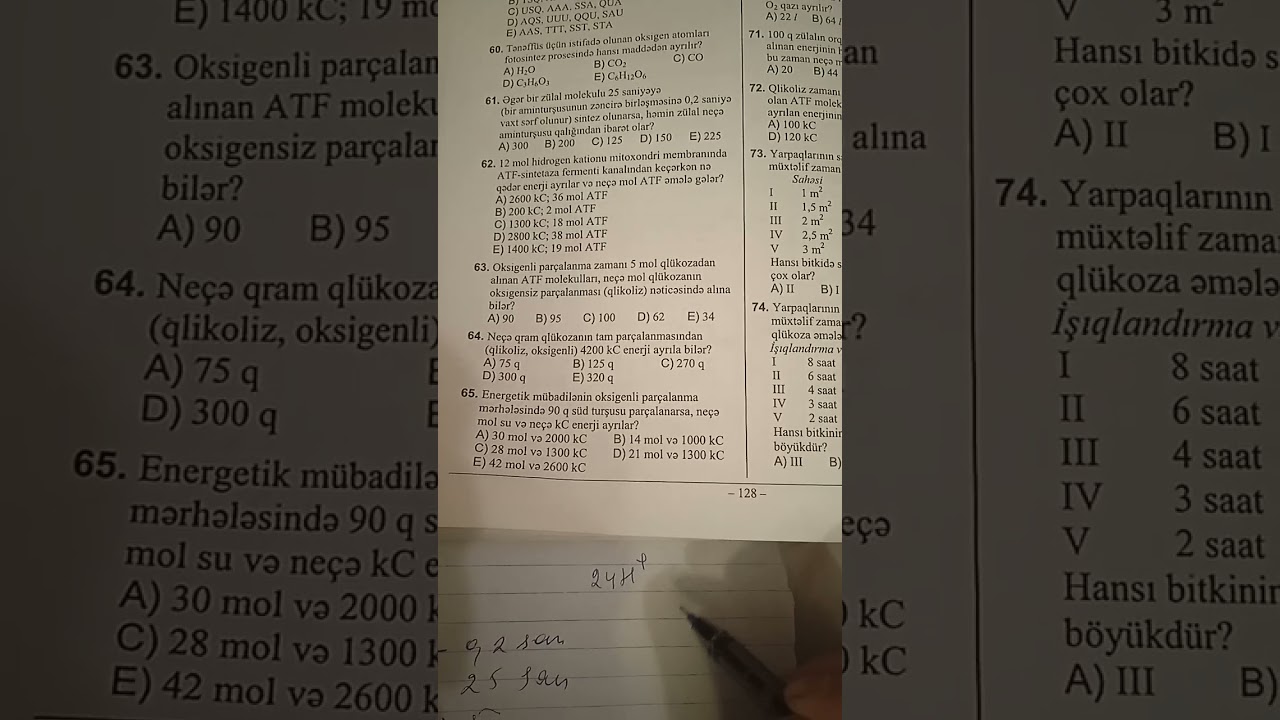 C) USQ, AAA, SSA, QUA
D) AQS, UUU, QQU, SAU
E) AAS, TTT, SST, STA
60. Tənəffüs üçün istifadə olunan oksigen atomları
fotosintez prosesində hansı maddədən ayrılır?
A) H₂O B) CO₂ C) CO
D) C₃H₆O₃ E) C₆H₁₂O₆
61. Əgər bir zülal molekulu 25 saniyəyə
(bir aminturşusunun zəncirə birləşməsinə 0,2 saniyə
vaxt sərf olunur) sintez olunarsa, həmin zülal neçə
aminturşusu qalığından ibarət olar?
A) 300 B) 200 C) 125 D) 150 E) 225
62. 12 mol hidrogen kationu mitoxondri membranında
ATF-sintetaza fermenti kanalından keçərkən nə
qədər enerji ayrılar və neçə mol ATF əmələ gələr?
A) 2600 kC; 36 mol ATF
B) 200 kC; 2 mol ATF
C) 1300 kC; 18 mol ATF
D) 2800 kC; 38 mol ATF
E) 1400 kC; 19 mol ATF
63. Oksigenli parçalanma zamanı 5 mol qlükozadan
alınan ATF molekulları, neçə mol qlükozanın
oksigensiz parçalanması (qlikoliz) nəticəsində alına
bilər?
A) 90 B) 95 C) 100 D) 62 E) 34
64. Neçə qram qlükozanın tam parçalanmasından
(qlikoliz, oksigenli) 4200 kC enerji ayrıla bilər?
A) 75 q B) 125 q C) 270 q
D) 300 q E) 320 q
65. Energetik mübadilənin oksigenli parçalanma
mərhələsində 90 q süd turşusu parçalanarsa, neçə
mol su və neçə kC enerji ayrılar?
A) 30 mol və 2000 kC B) 14 mol və 1000 kC
C) 28 mol və 1300 kC D) 21 mol və 1300 kC
E) 42 mol və 2600 kC
O₂ qazı ayrılır?
A) 22 l B) 64 l
71. 100 q zülalın
alınan enerjinin
bu zaman neçə
A) 20 B) 44
72. Qlikoliz zamanı
olan ATF
ayrılan enerjinin
A) 100 kC
D) 120 kC
73. Yarpaqlarının
müxtəlif zaman
Sahəsi
I 1 m²
II 1,5 m²
III 2 m²
IV 2,5 m²
V 3 m²
Hansı bitkidə
çox olar?
A) II B) I
74. Yarpaqlarının
müxtəlif
qlükoza
İşıqlandırma
I 8 saat
II 6 saat
III 4 saat
IV 3 saat
V 2 saat
Hansı
böyükdür?
A) III B)
– 128 –
24H⁺
0,2 san
25 san